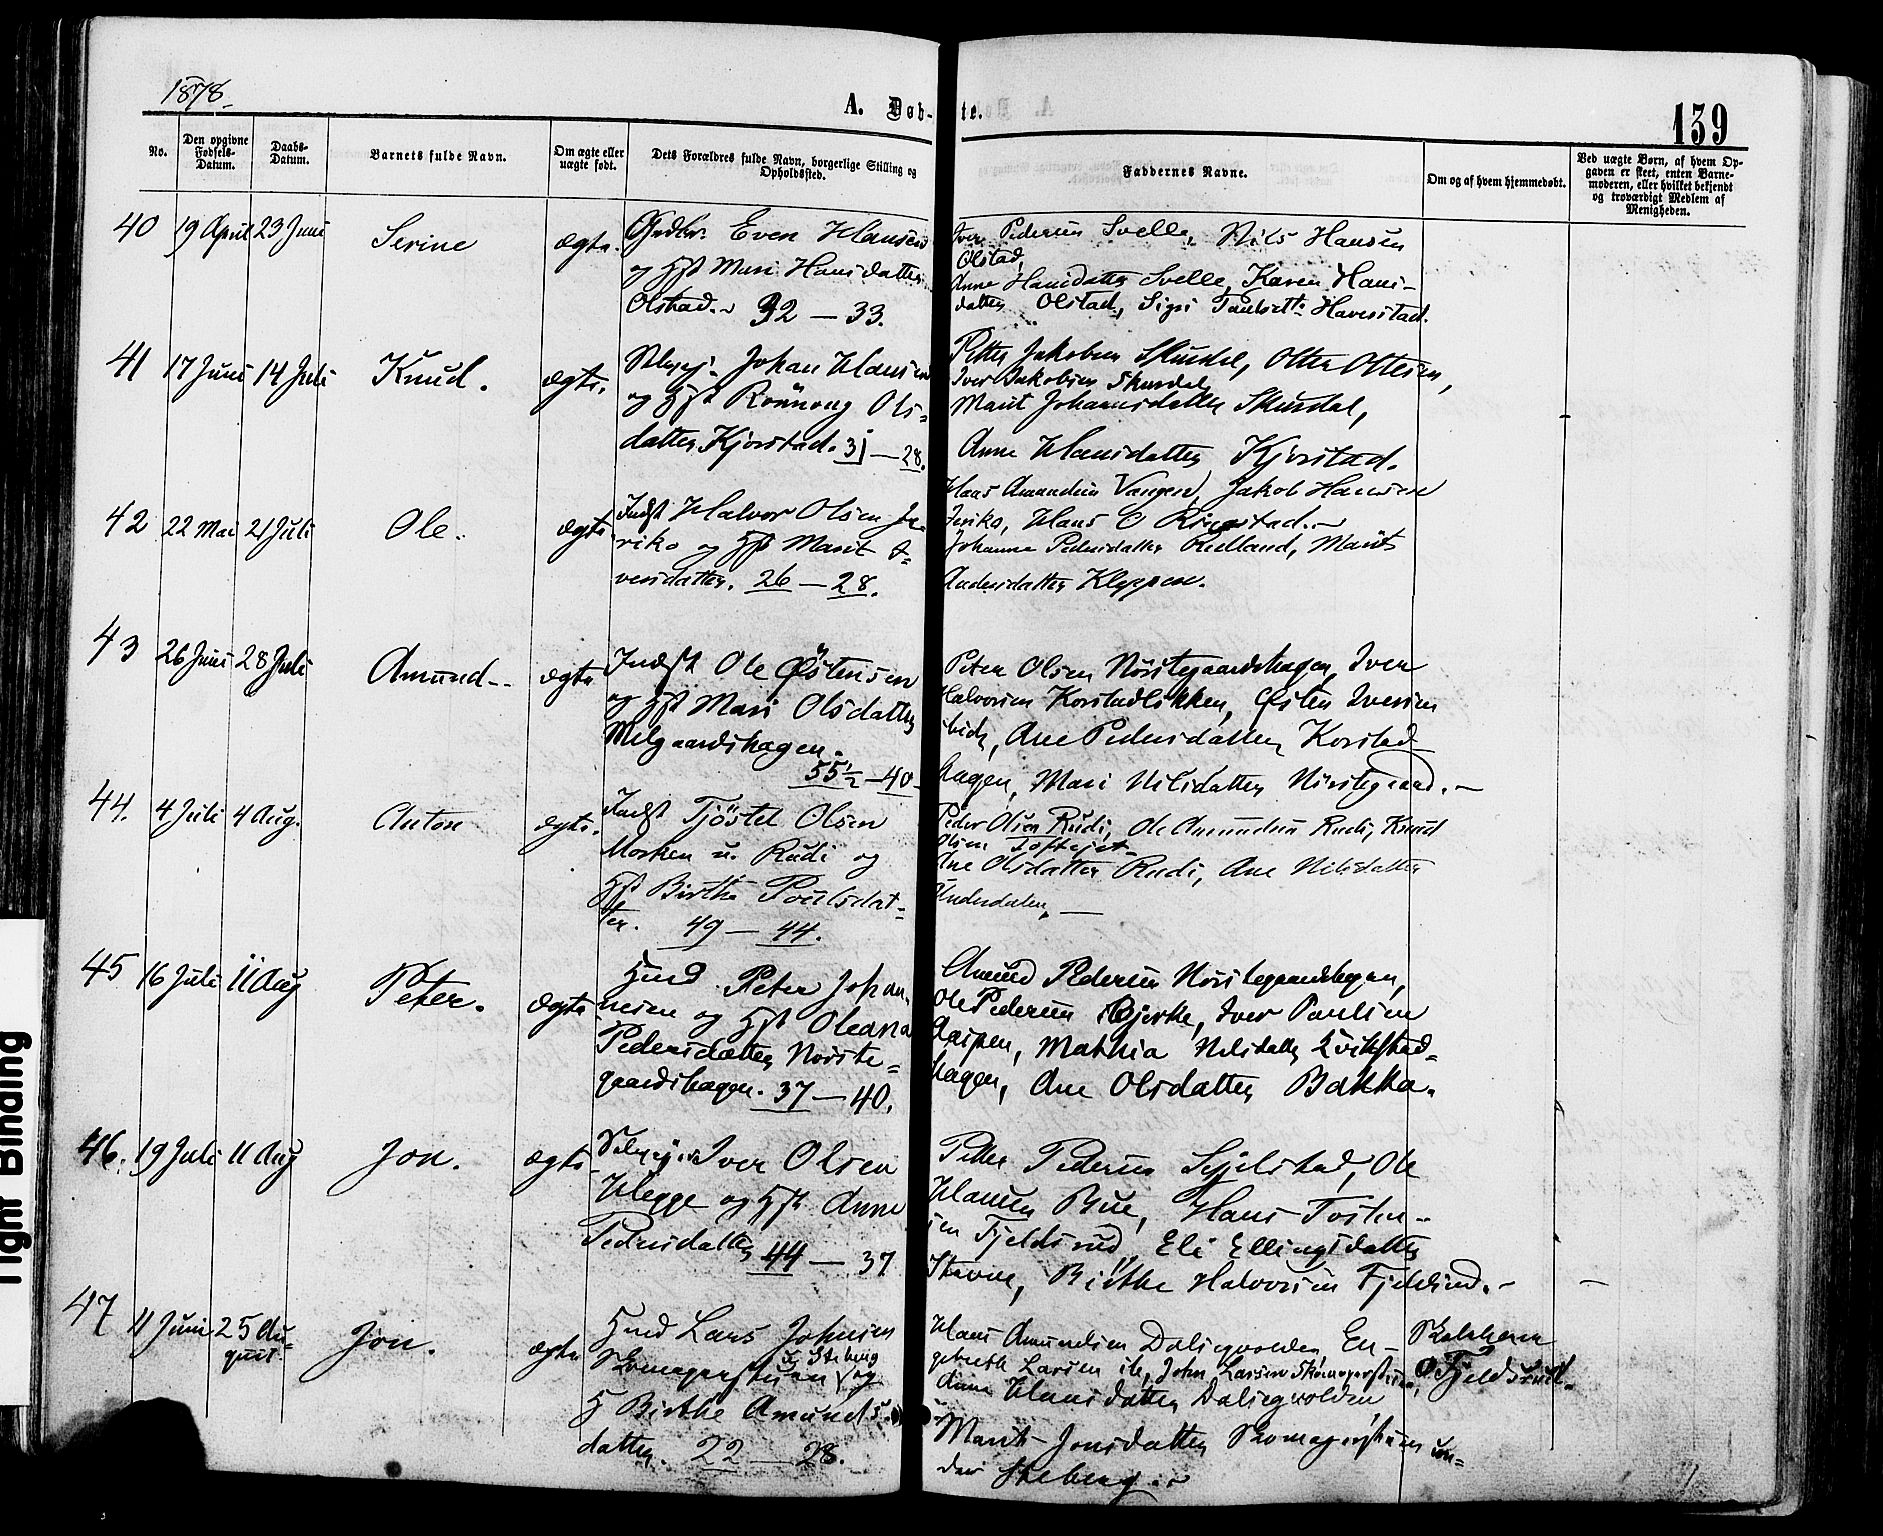 1878.
A. Døb-te.
139
No.
Den opgivne Fødsels-Datum.
Daabs-Datum.
Barnets fulde Navn.
Om ægte eller uægte født.
Dets Forældres fulde Navn, borgerlige Stilling og Opholdssted.
Faddernes Navne.
Om og af hvem hjemmedøbt.
Ved uægte Børn, af hvem Opgaven er skeet, enten Barnemoderen, eller hvilket bekjendt og troværdigt Medlem af Menigheden.
40 19 April 23 Juni Serine ægte.
Even Hansen
og Hst Mari Hansdatter
Olstad. 32 — 33.
Iver Pedersen Svelle, Nils Hansen
Olstad,
Anne Hansdatter Svelle, Karen Hans-
datter Olstad, Sigri Haverstad.
41 17 Juni 14 Juli Knud. ægte.
Selvej. Johan Hansen
og Hst Rønnoug Ols-
datter Kjorstad. 31 — 28.
Petter Jakobsen Skurdal, Otter Olsen,
Iver Jakobsen Skurdal,
Marit Johannsdatter Skurdal,
Anne Hansdatter Kjorstad.
42 22 Mai 21 Juli Ole. ægte
Indst Halvor Olsen Je-
riko og Hst Marit I-
versdatter. 26 — 28.
Hans Amundsen Vangen, Jakob Hansen
Jeriko, Hans O Ringstad.
Johanne Pedersdatter Rudland, Marit
Andersdatter Kleppen.
43 26 Juni 28 Juli Amund ægte
Indst Ole Østensen
og Hst Mari Olsdatter
Melgaardshagen.
55½ — 40
Peter Olsen Nørstegaardshagen, Iver
Halvorsen Korstadløkken, Østen Iversen
ibid, Ane Pedersdatter Korstad-
hagen, Mari Nilsdatter Nørstegaard.
44. 4 Juli 4 Aug. Anton ægte.
Indst Tjøstel Olsen
Morken u. Rudi og
Hst Birthe Poulsdat-
ter. 49 — 44.
Peder Olsen Rudi, Ole Amundsen Rudi, Knud
Olsen
Ane Olsdatter Rudi, Ane Nilsdatter
45 16 Juli 11 Aug Peter. ægte
Hmd Peter Johan-
nesen og Hst Oleana
Pedersdatter Nørste-
gaardshagen. 37 — 40.
Amund Pedersen Nørstegaardshagen,
Ole Pedersen Bjerke, Iver Paulsen
Aaspen, Mathia Nilsdatter Kvikstad-
hagen, Ane Olsdatter Bakka.
46. 19 Juli 11 Aug Jon. ægte
Selvejer Iver Olsen
Hegge og Hst Anne
Pedersdatter 44 — 37
Petter Pedersen Sejelstad, Ole
Hansen Bue, Hans Tosten-
sen Fjeldsrud, Eli Ellingsdatter
Stavne, Birthe Halvorsen Fjeldsrud.
47 11 Juni 25 Au-
gust. Jon. ægte
Hmd Lars Johnsen
Skomagerstuen u Steberg og
H Birthe Amunds-
datter. 22 — 28.
Hans Amundsen Dalsegvolden, En-
gebreth Larsen ib, John Larsen Skomagerstuen,
Anne Hansdatter Dalsegvolden
Marit Jonsdatter Skomagerstuen un-
der Steberg.
Skolehern
O Fjeldsrud.
Tight Binding